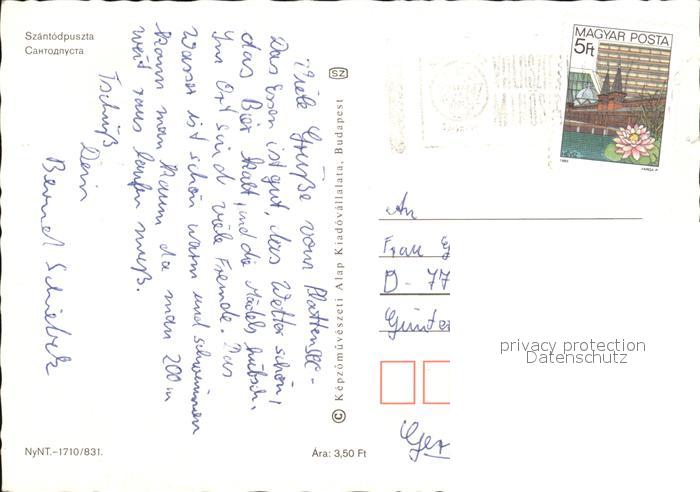 Szántódpuszta
Сантодпуста
Viele Grüße vom Plattensee -
Das Essen ist gut, das Wetter schön,
das Bier kalt, und die Mädels hübsch.
Im Ort sind viele Fremde. Das
Wasser ist schön warm und schwimmen
kann man kaum da man 200 m
weit raus laufen muß.
Tschüß
Dein
Bernd
NyNT.-1710/831.
SZ
© Képzőművészeti Alap Kiadóvállalata, Budapest
Ára: 3,50 Ft
MAGYAR POSTA
5Ft
HÉVÍZ
1983
VARGA P.
An
Frau
D - 77
Günter
privacy protection
Datenschutz
Ger